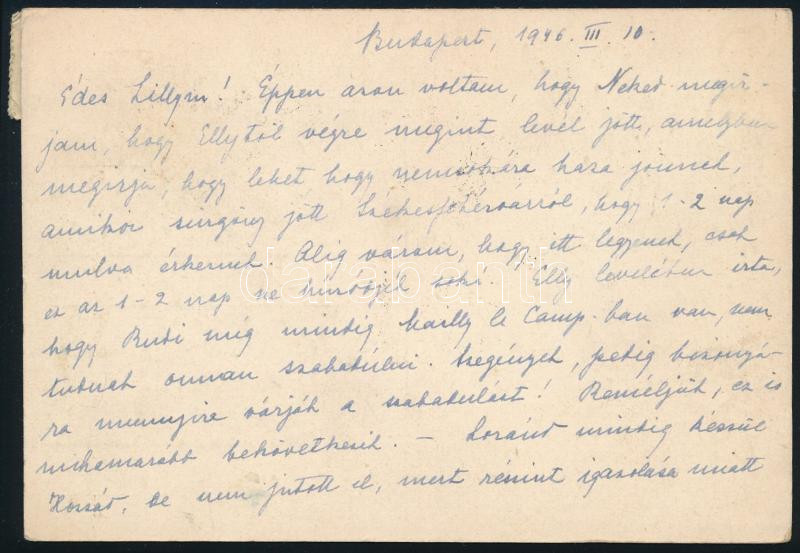 Budapest, 1946. III. 10.
Édes Lillym! Éppen azon voltam, hogy Neked megir-
jam, hogy Ellytől végre megint levél jött, amelyben
megirja, hogy lehet hogy nemsokára haza jönnek,
amikor sürgöny jött Székesfehérvárról, hogy 1-2 nap
mulva érkeznek. Alig várom, hogy itt legyenek, csak
ez az 1-2 nap ne húzódjék soká. Elly levelében irta,
hogy Rudi még mindig Mailly le Camp-ban van, nem
tudnak onnan szabadulni. Szegények, pedig bizonyá-
ra mennyire várják a szabadulást! Reméljük, ez is
mihamarább bekövetkezik. — Loránd mindig készül
Hozzád, de nem jutott el, mert részint igazolása miatt
darabanth